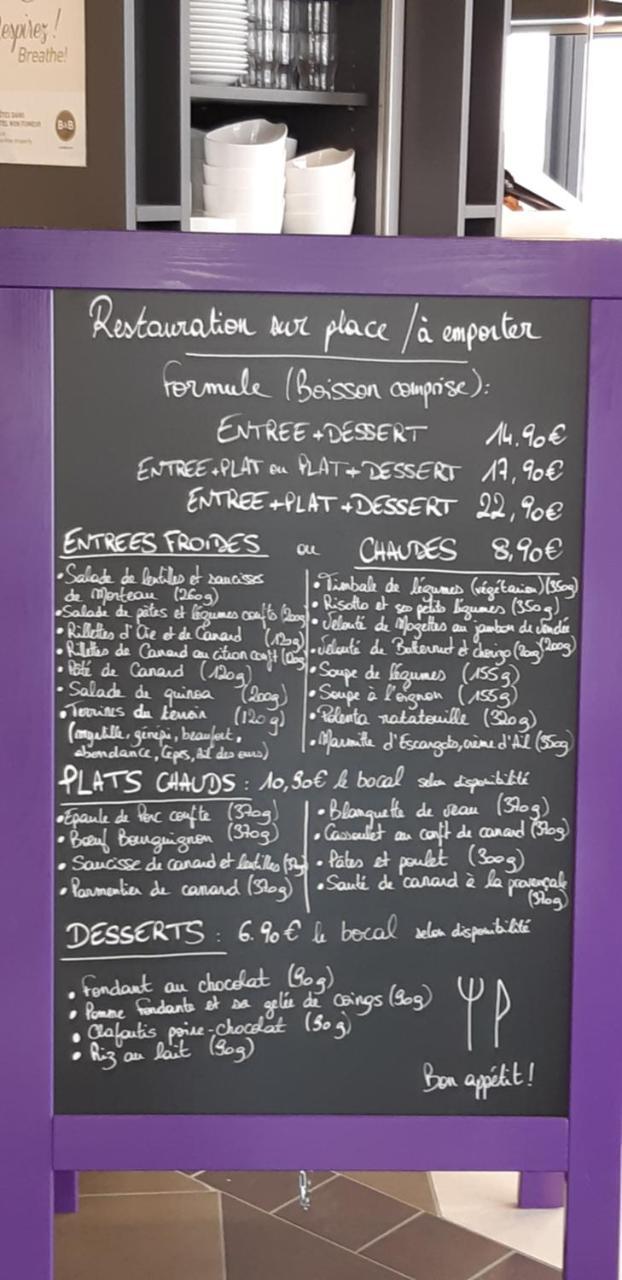 espirez!
Breathe!
B&B
Restauration sur place / à emporter
Formule (Boisson comprise):
ENTREE + DESSERT 14,90€
ENTREE + PLAT ou PLAT + DESSERT 17,90€
ENTREE + PLAT + DESSERT 22,90€
ENTREES FROIDES ou CHAUDES 8,90€
• Salade de lentilles et saucisses
de Morteau (260g)
• Salade de pâtes et légumes confits (200g)
• Rillettes d'Oie et de Canard (120g)
• Rillettes de Canard au citron confit (120g)
• Pâté de Canard (120g)
• Salade de quinoa (200g)
• Terrines du terroir (120g)
(myrtille, génépi, beaufort,
abondance, Cèpes, Ail des ours)
• Timbale de légumes (végétarien) (350g)
• Risotto et ses petits légumes (350g)
• Velouté de Mogettes au jambon de vendée
(200g)
• Velouté de Butternut et chorizo
• Soupe de légumes (155g)
• Soupe à l'oignon (155g)
• Polenta ratatouille (320g)
• Marmite d'Escargots, crème d'Ail (350g)
PLATS CHAUDS : 10,90€ le bocal selon disponibilité
• Epaule de Porc confite (370g)
• Bœuf Bourguignon (370g)
• Saucisse de canard et lentilles
• Parmentier de canard (370g)
• Blanquette de veau (370g)
• Cassoulet au confit de canard (370g)
• Pâtes et poulet (300g)
• Sauté de canard à la provençale
(370g)
DESSERTS : 6.90€ le bocal selon disponibilité
• Fondant au chocolat (90g)
• Pomme fondante et sa gelée de coings (90g)
• Clafoutis poire-chocolat (90g)
• Riz au lait (90g)
Bon appétit!